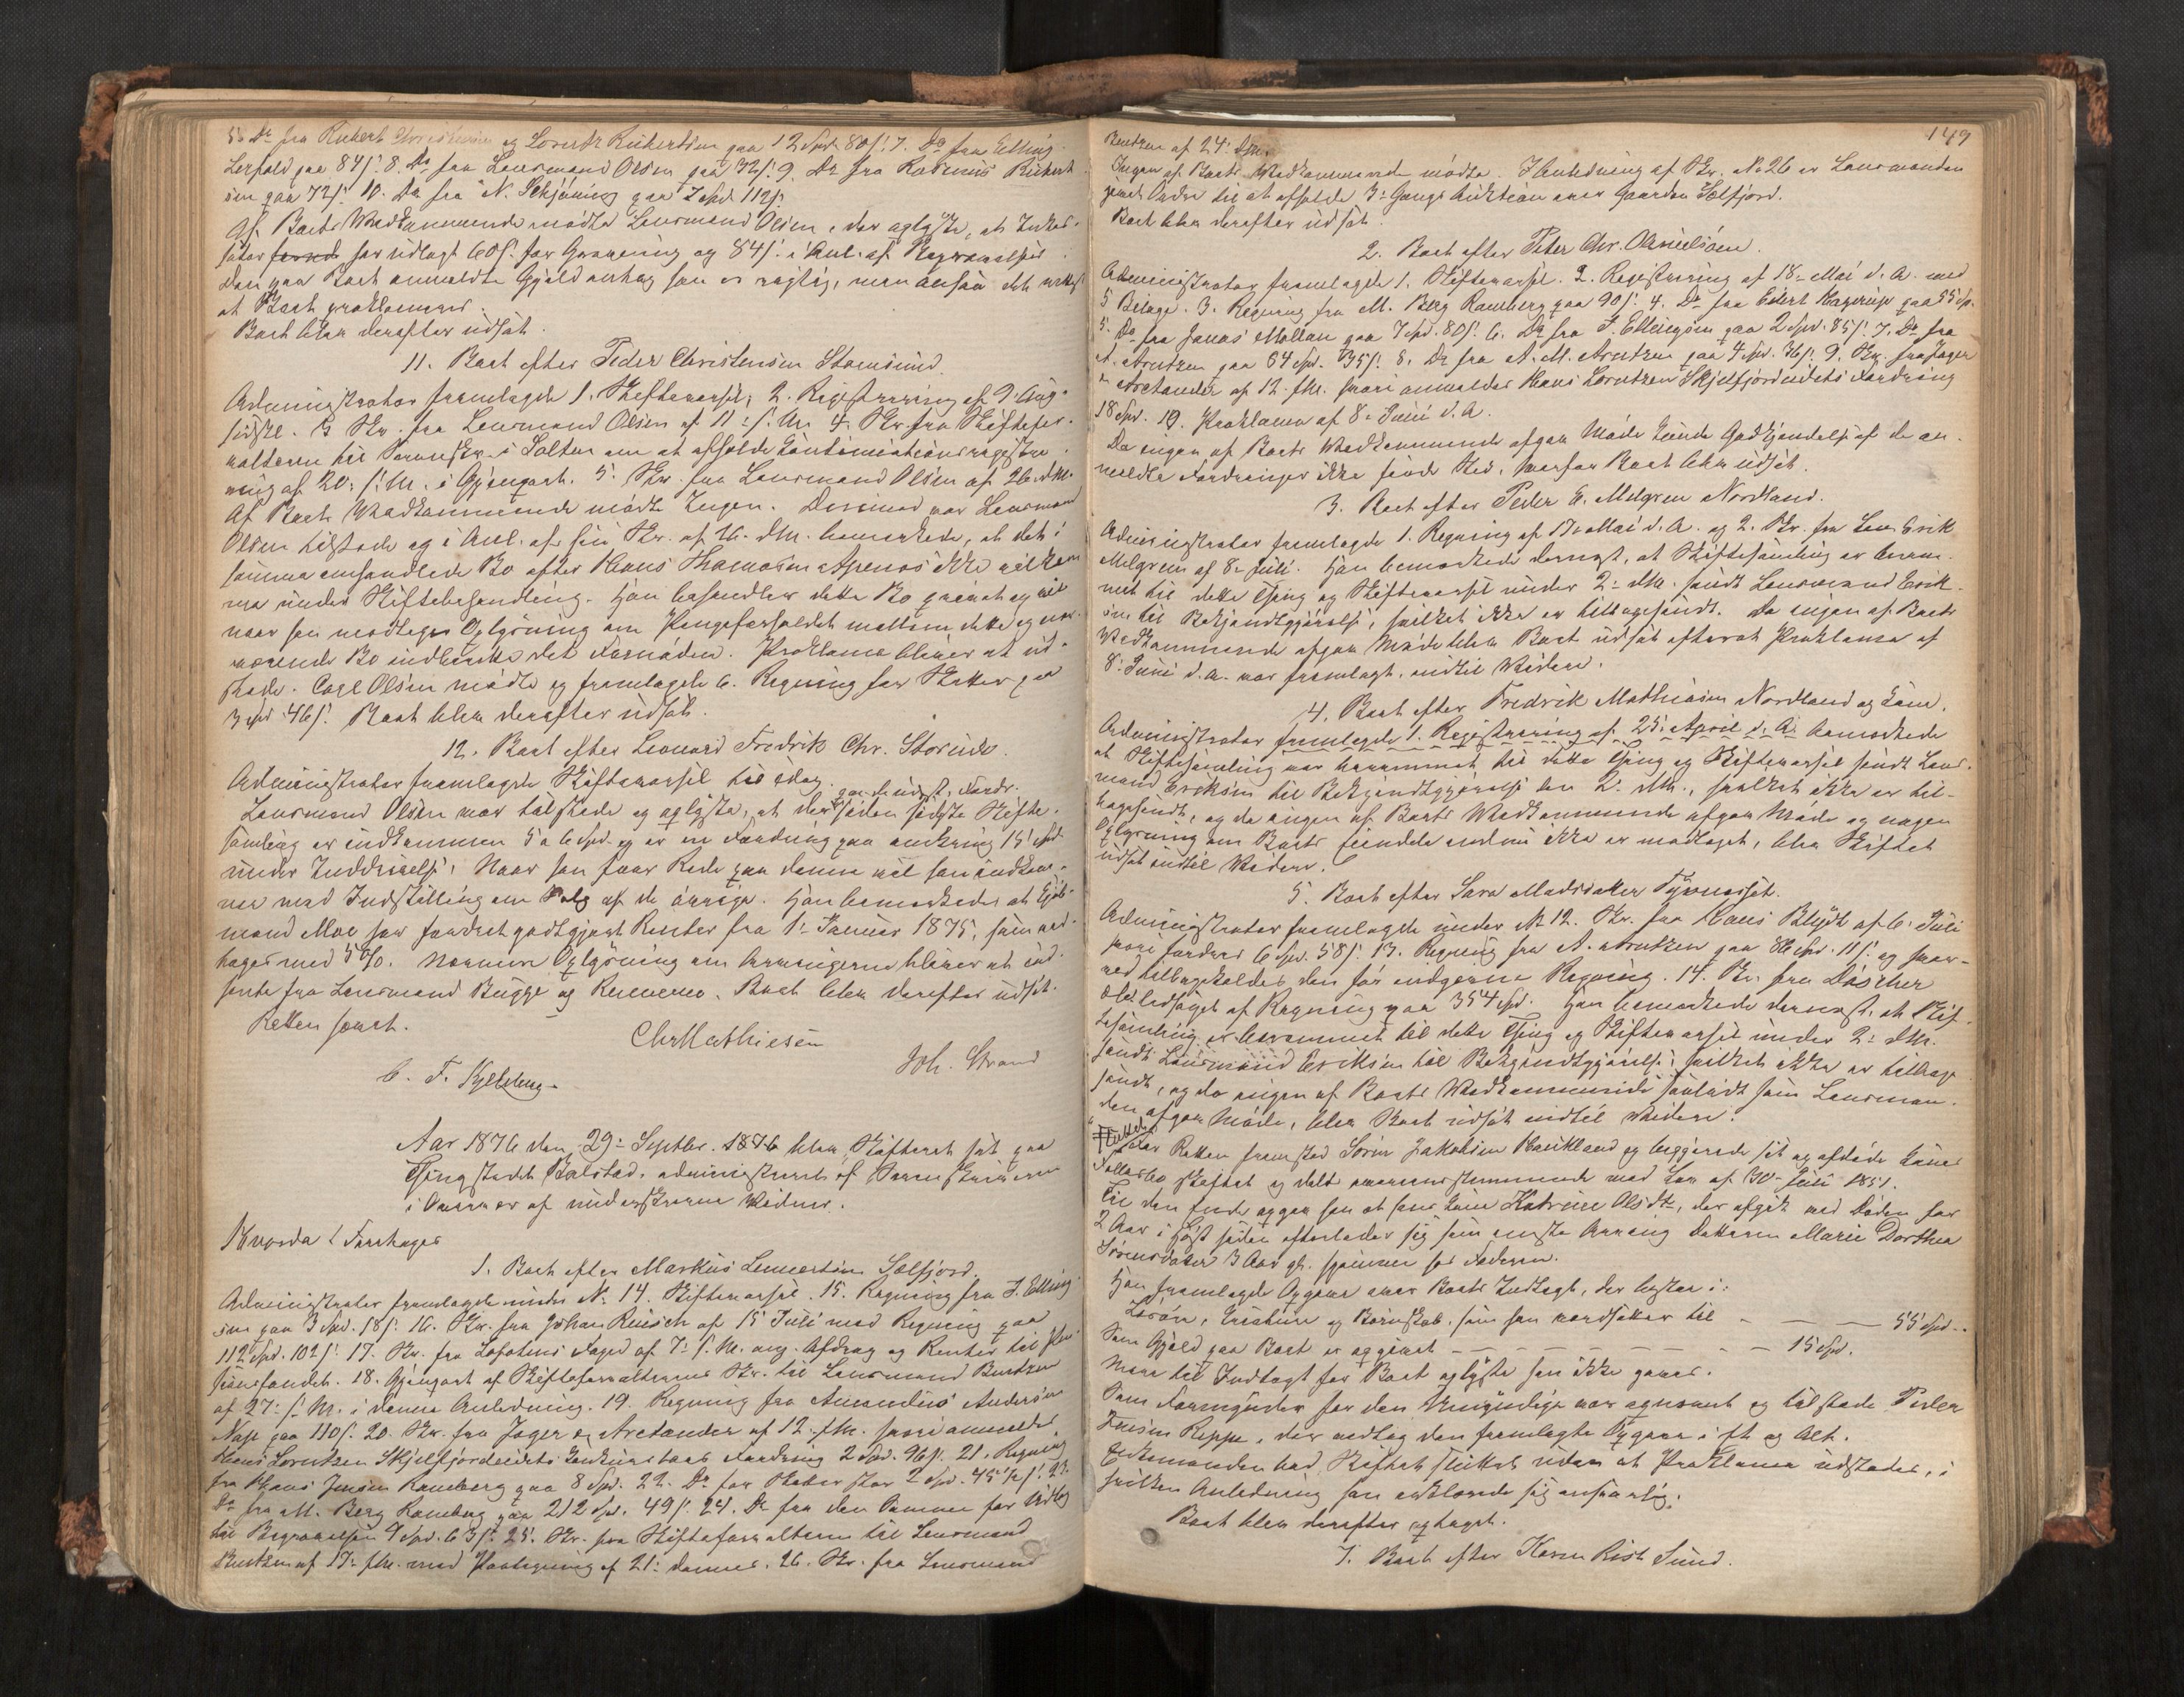 5. Do fra Rickert Christensen og Lorentz Rickertsen paa 12 Spd. 80 s. 7. Do fra Elling
Lerfald paa 84 s. 8. Do fra Lensmand Olsen paa 72 s. 9. Do fra Rasmus Rickert
sen paa 72 s. 10. Do fra N. Schjöning paa 7 Spd. 112 s.
Af Boets Vedkommende mødte Lensmand Olsen, der oplyste, at Indkas-
sator har udlagt 60 s. for Gravning og 84 s. i Anl. af Begravelsen
den paa Boet anmeldte Gjæld antog han er rigtig, men ansaa det rettest
at Boet proklameres.
Boet blev derefter udsat.
11. Boet efter Peder Christensen Stamsund.
Administrator fremlagde 1. Skiftevarsel; 2. Registrering af 9. Aug.
sidstl. 3 Skr. fra Lensmand Olsen af 11 s. M. 4. Skr. fra Skiftefor-
valteren til Sorenskr. i Salten om at afholde Continuationsregistre-
ring af 20. s. M. i Gjenpart. 5. Skr. fra Lensmand Olsen af 26. d. M.
Af Boets Vedkommende mødte Ingen. Derimod var Lensmand
Olsen tilstede og i Anl. af sin Skr. af 26. d.M. bemærkede, at det i
samme omhandlede Bo efter Hans Thomasen Apenes ikke vil kom
me under Skiftebehandling. Han behandler dette Bo privat og vil
naar han modtager Oplysning om Pengeforholdet mellem dette og nær-
værende Bo indberette det Fornødne. Proklama bliver at ud-
stede. Carl Olsen mødte og fremlagde 6. Regning for Skatter paa
3 Spd. 46 s. Boet blev derefter udsat.
12. Boet efter Leonard Fredrik Chr. Storeide.
Administrator fremlagde Skiftevarsel til idag.
Lensmand Olsen var tilstede og oplyste, at der paa de udest. Fordr. siden sidste Skifte-
samling er indkommen 5 a 6 Spd. og er en Fordring paa omkring 15 Spd.
under Inddrivelse. Naar han faar Rede paa denne vil han indkom-
me med Indstilling om Salg af de øvrige. Han bemærkede at Kjøb-
mand Moe har fordret godtgjort Renter fra 1. Januar 1875, som ved-
tages med 5 %. Nærmere Oplysning om Arvingerne bliver at ind-
hente fra Lensmand Bugge og Rennemo. Boet blev derefter udsat.
Retten hævet.
Chr Mathiesen
Joh. Strand
C. F. Kjeldseng
Aar 1876 den 29. Septbr. 1876 blev Skifteret sat paa
Thingstedet Balstad, administreret af Sorenskriveren
i Overvær af underskrevne Vidner.
Hvorda / Foretoges
1. Boet efter Markus Lennertsen Selfjord.
Administrator fremlagde under No. 14. Skiftevarsel. 15. Regning fra J. Elling-
sen paa 3 Spd. 18 s. 16. Skr. fra Johan Reusch af 15 Juli med Regning paa
112 Spd. 102 s. 17. Skr. fra Lofotens Foged af 7. s. M. ang. Afdrag og Renter til Pen-
sionsfondet. 18. Gjenpart af Skifteforvalterens Skr. til Lensmand Bentzen
af 27. s. M. i denne Anledning. 19. Regning fra Amandus Andersen
Nap paa 110 s. 20. Skr. fra Jæger & Aretander af 12. f.M. hvori anmeldes
Hans Lorentzen Skjelfjordeidets Konkursboes Fordring 2 Spd. 96 s. 21. Regning
fra Hans Jensen Ramberg paa 8 Spd. 22. Do for Skatter stor 2 Spd. 45 1/2 s. 23.
Do fra M. Berg Ramberg paa 212 Spd. 49 s. 24. Do fra den Samme for Udlæg
til Begravelsen 4 Spd. 63 s. 25. Skr. fra Skifteforvalteren til Lensmand
Bentzen af 17. f.M. med Paategning af 21. dennes. 26. Skr. fra Lensmand
149
Bentzen af 24. d.M.
Ingen af Boets Vedkommende mødte. I Anledning af Skr. No 26 er Lensmanden
givet Ordre til at afholde 3. Gangs Auktion over Gaarden Selfjord.
Boet blev derefter udsat.
2. Boet efter Peter Chr. Danielsen.
Administrator fremlagde 1. Skiftevarsel. 2. Registrering af 18. Mai d. A. med
5 Bilage. 3. Regning fra M. Berg Ramberg paa 90 s. 4. Do fra Edert Hagerup paa 55 Sp.
5. Do fra Jonas Mollan paa 7 Spd. 80 s. 6. Do fra J. Ellingsen paa 2 Spd. 85 s. 7. Do fra
A. Arntzen paa 64 Spd. 35 s. 8. Do fra A. M. Arntzen paa 4 Spd. 36 s. 9. Skr. fra Jæger
& Aretander af 12. f.M. hvori anmeldes Hans Lorentzen Skjelfjordeidets Fordring
18 Spd. 10. Proklama af 8. Juni d. A.
Da ingen af Boets Vedkommende afgav Møde kunde Godkjendelse af de an-
meldte Fordringer ikke finde Sted, hvorfor Boet blev udsat.
3. Boet efter Peder E. Melgren Nordland.
Administrator fremlagde 1. Regning af 17. Mai d. A. og 2. Skr. fra Len. Erik
Melgren af 8. Juli. Han bemærkede dernæst, at Skiftesamling er beram-
met til dette Thing og Skiftevarsel under 2. d.M. sendt Lensmand Erik-
sen til Bekjendtgjørelse, hvilket ikke er tilbagesendt. Da ingen af Boets
Vedkommende afgav Møde blev Boet udsat efterat Proklama af
8. Juni d. A. var fremlagt, indtil Videre.
4. Boet efter Fredrik Mathiesen Nordland og Kone.
Administrator fremlagde 1. Registrering af 25. April d. A. bemærkede
at Skiftesamling var berammet til dette Thing og Skiftevarsel sendt Lens-
mand Eriksen til Bekjendtgjørelse den 2. d.M., hvilket ikke er til-
bagesendt, og da ingen af Boets Vedkommende afgav Møde og nogen
Oplysning om Boets Eiendele endnu ikke er modtaget, blev Skiftet
udsat indtil Videre.
5. Boet efter Sara Madsdatter Tyvnesset.
Administrator fremlagde under No 12. Skr. fra Hans Blydt af 6. Juli
hvori fordres 6 Spd. 58 s. 13. Regning fra A. Arntzen paa 86 Spd. 11 s. og hvor-
ved tilbagekaldes den før indgivne Regning. 14. Skr. fra Döscher
ledsaget af Regning paa 354 Spd. Han bemærkede dernæst, at Skif-
tesamling er berammet til dette Thing og Skiftevarsel under 2. d.M.
sendt Lensmand Eriksen til Bekjendtgjørelse, hvilket ikke er tilbage
sendt, og da ingen af Boets Vedkommende saalidt som Lensman-
den afgav Møde, blev Boet udsat indtil Videre.
Sluttet
For Retten fremstod Sören Jakobsen Haukland og begjærede sit og afdøde Kones
Fællesbo skiftet og delt overensstemmende med Lov af 30. Juli 1851.
Til den Ende opgav han at hans Kone Katrine Olsdtr, der afgik ved Døden for
2 Aar i Høst siden efterlader sig som eneste Arving Datteren Marie Dorthea
Sörensdatter 3 Aar gl. hjemme hos Faderen.
Han fremlagde Opgave over Boets Indtægt, der bestaar i:
Løsøre, Creature og Børnskab, som han værdsætter til - — — — 55 Spd..
Som Gjæld paa Boet er opgivet — — — — — — 15 Spd.
Mere til Indtægt for Boet oplyste han ikke haves.
Som Formynder for den Umyndige var opnævnt og tilstede Peder
Jensen Reppe, der vedtog den fremlagte Opgave i Et og Alt.
Enkemanden bad Skiftet sluttet uden at Proklama udstedes, i
hvilken Anledning han erklærede sig ansvarlig.
Boet blev derefter optaget.
7. Boet efter Karen Rist Sund.